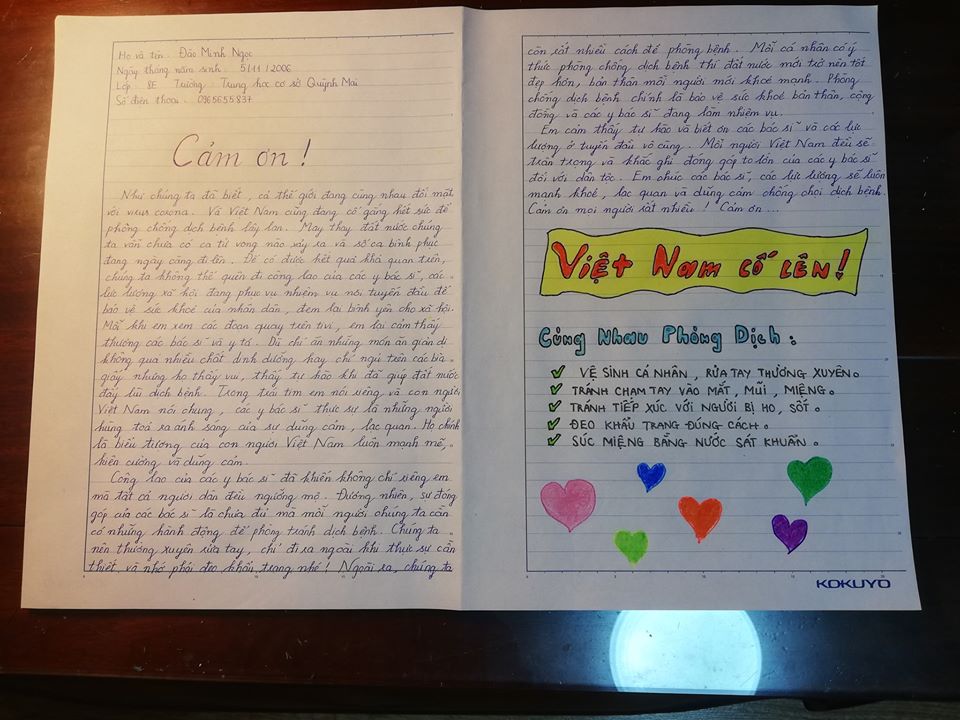 Họ và tên : Đào Minh Ngọc
Ngày tháng năm sinh : 5/11/2006
Lớp : 8E Trường : Trung học cơ sở Quỳnh Mai
Số điện thoại : 0965655837
Cảm ơn !
Như chúng ta đã biết , cả thế giới đang cùng nhau đối mặt
với virus corona . Và Việt Nam cũng đang cố gắng hết sức để
phòng chống dịch bệnh lây lan . May thay đất nước chúng
ta vẫn chưa có ca tử vong nào xảy ra và số ca bình phục
đang ngày càng đi lên . Để có được kết quả khả quan trên,
chúng ta không thể quên đi công lao của các y bác sĩ , các
lực lượng xã hội đang phục vụ nhiệm vụ nơi tuyến đầu để
bảo vệ sức khoẻ của nhân dân , đem lại bình yên cho xã hội.
Mỗi khi em xem các đoạn quay trên tivi , em lại cảm thấy
thương các bác sĩ và y tá . Dù chỉ ăn những món ăn giản dị
không quá nhiều chất dinh dưỡng hay chỉ ngủ trên các bìa
giấy nhưng họ thấy vui , thấy tự hào khi đã giúp đất nước
đẩy lùi dịch bệnh . Trong trái tim em nói riêng và con người
Việt Nam nói chung , các y bác sĩ thực sự là những người
hùng toả ra ánh sáng của sự dũng cảm , lạc quan . Họ chính
là biểu tượng của con người Việt Nam luôn mạnh mẽ,
kiên cường và dũng cảm.
Công lao của các y bác sĩ đã khiến không chỉ riêng em
mà tất cả người dân đều ngưỡng mộ . Đương nhiên , sự đóng
góp của các bác sĩ là chưa đủ mà mỗi người chúng ta cần
có những hành động để phòng tránh dịch bệnh . Chúng ta
nên thường xuyên rửa tay , chỉ đi ra ngoài khi thực sự cần
thiết và nhớ phải đeo khẩu trang nhé ! Ngoài ra , chúng ta
còn rất nhiều cách để phòng bệnh . Mỗi cá nhân có ý
thức phòng chống dịch bệnh thì đất nước mới trở nên tốt
đẹp hơn , bản thân mỗi người mới khoẻ mạnh . Phòng
chống dịch bệnh chính là bảo vệ sức khoẻ bản thân, cộng
đồng và các y bác sĩ đang làm nhiệm vụ .
Em cảm thấy tự hào và biết ơn các bác sĩ và các lực
lượng ở tuyến đầu vô cùng . Mỗi người Việt Nam đều sẽ
trân trọng và khắc ghi đóng góp to lớn của các y bác sĩ
đối với dân tộc . Em chúc các bác sĩ, các lực lượng sẽ luôn
mạnh khoẻ , lạc quan và dũng cảm chống chọi dịch bệnh .
Cảm ơn mọi người rất nhiều ! Cảm ơn ...
Việt Nam cố lên!
Cùng Nhau Phòng Dịch :
VỆ SINH CÁ NHÂN , RỬA TAY THƯỜNG XUYÊN .
TRÁNH CHẠM TAY VÀO MẮT , MŨI , MIỆNG .
TRÁNH TIẾP XÚC VỚI NGƯỜI BỊ HO , SỐT .
ĐEO KHẨU TRANG ĐÚNG CÁCH .
SÚC MIỆNG BẰNG NƯỚC SÁT KHUẨN .
KOKUYO